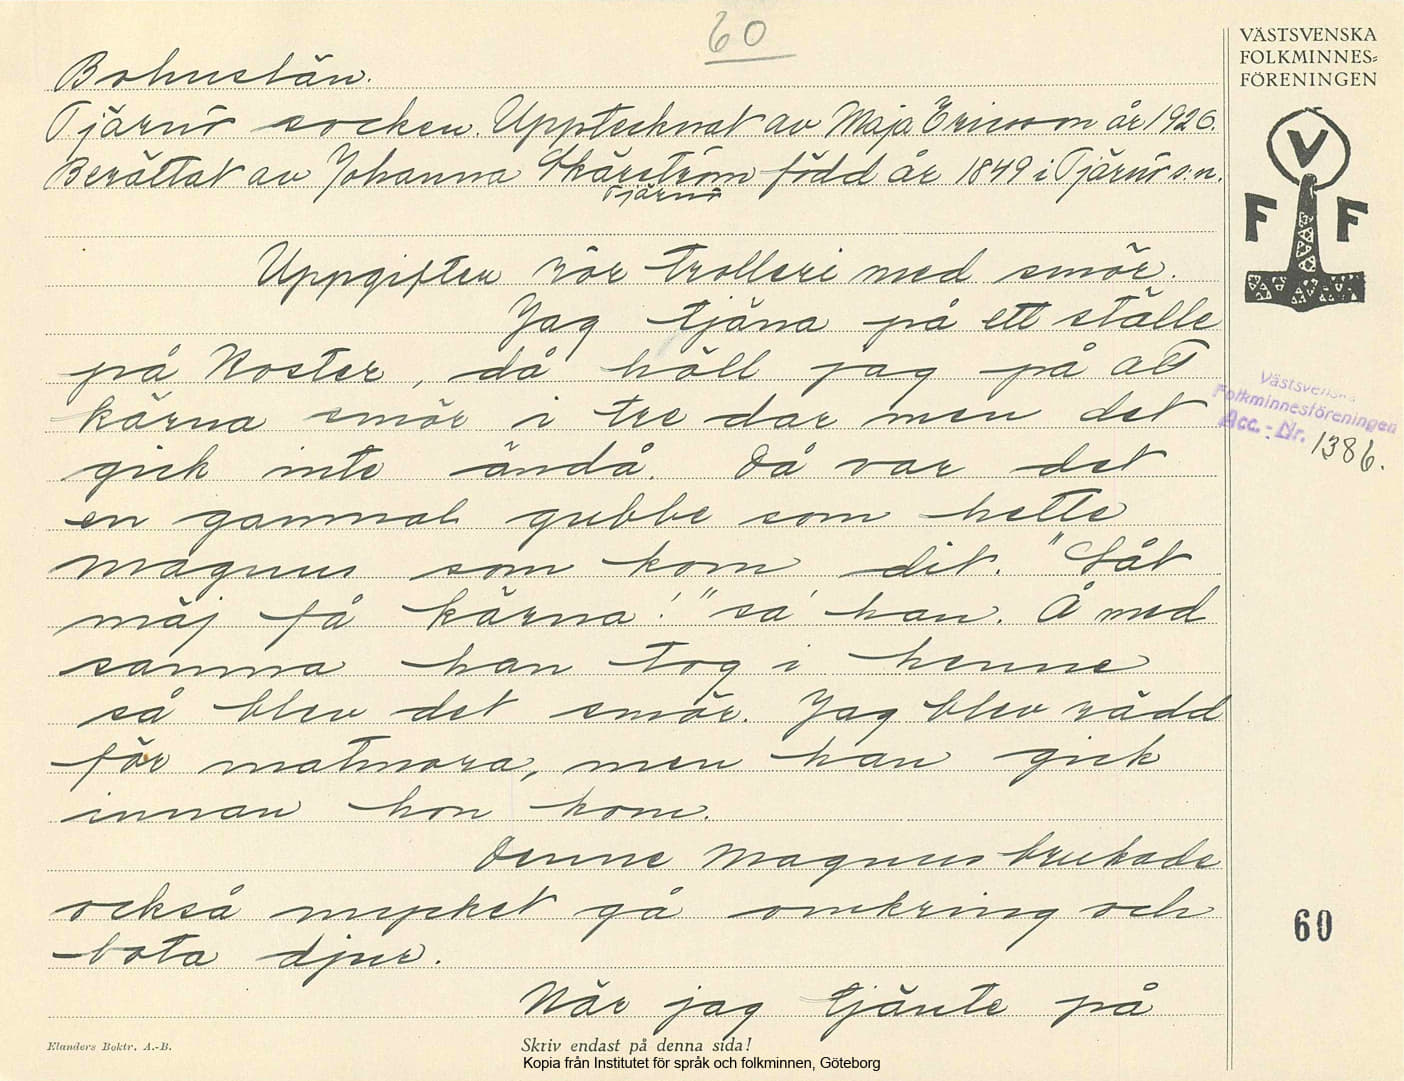 60
VÄSTSVENSKA
FOLKMINNES=
FÖRENINGEN
Bohuslän.
Tjärnö socken. Upptecknat av Maja Ericson år 1926.
Berättat av Johanna Skärström född år 1849 i Tjärnö s:n.
Tjärnö
V
F F
Uppgifter rör trolleri med smör.
Jag tjäna på ett ställe
på Koster, då höll jag på att
kärna smör i tre dar men det
gick inte ändå. Då var det
en gammal gubbe som hette
Magnus som kom dit. "Låt
mäj få kärna!" sa' han. Å med
samma han tog i henne
så blev det smör. Jag blev rädd
för matmora, men han gick
innan hon kom.
Denne Magnus brukade
också mycket gå omkring och
bota djur.
När jag tjänte på
Västsvenska
Folkminnesföreningen
Acc. - Nr. 1386.
60
Elanders Boktr. A.-B.
Skriv endast på denna sida!
Kopia från Institutet för språk och folkminnen, Göteborg